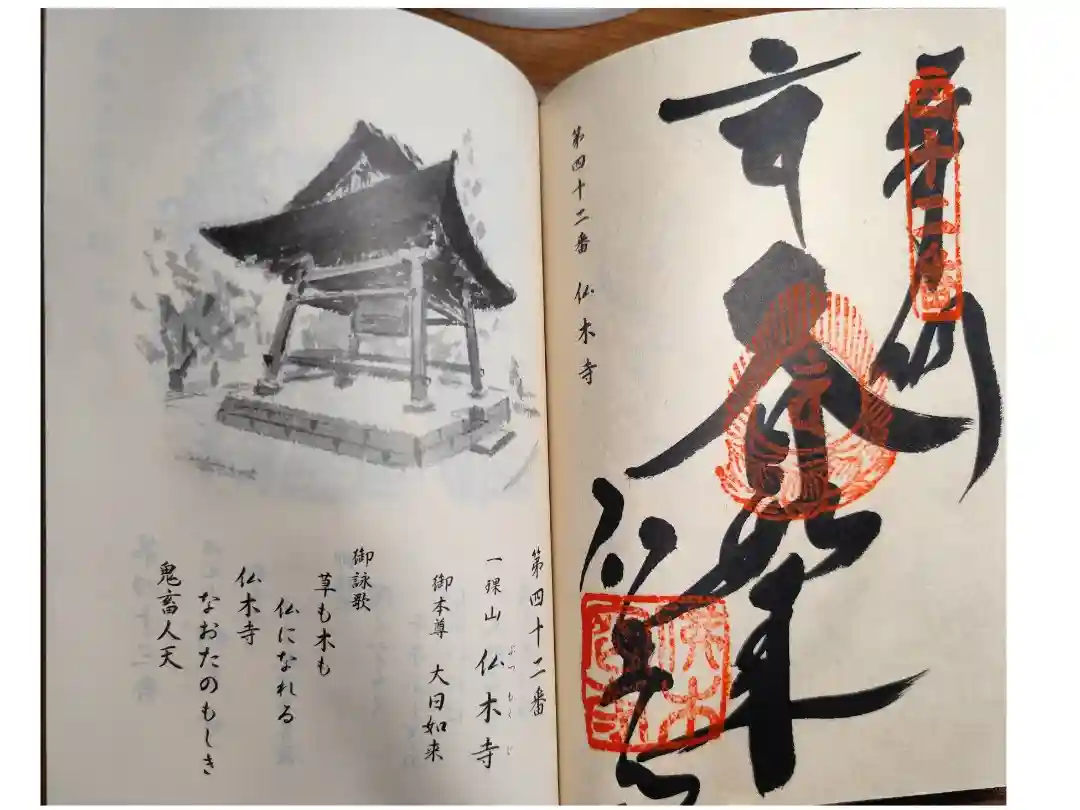 四十二番
大日如来
仏木寺
第四十二番 仏木寺
第四十二番
一𤦲山 仏木寺
ぶつもくじ
御本尊 大日如来
御詠歌
草も木も
仏になれる
仏木寺
なおたのもしき
鬼畜人天